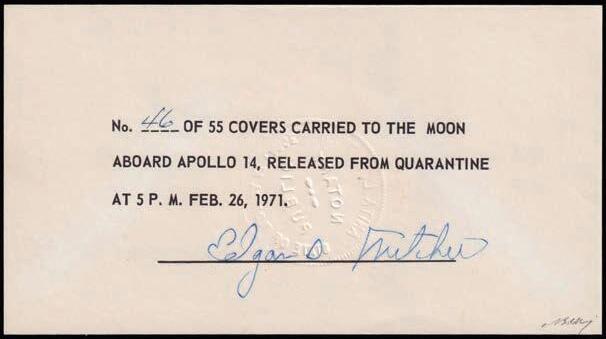 No. 46 OF 55 COVERS CARRIED TO THE MOON
ABOARD APOLLO 14, RELEASED FROM QUARANTINE
AT 5 P. M. FEB. 26, 1971.
Edgar D Mitchell